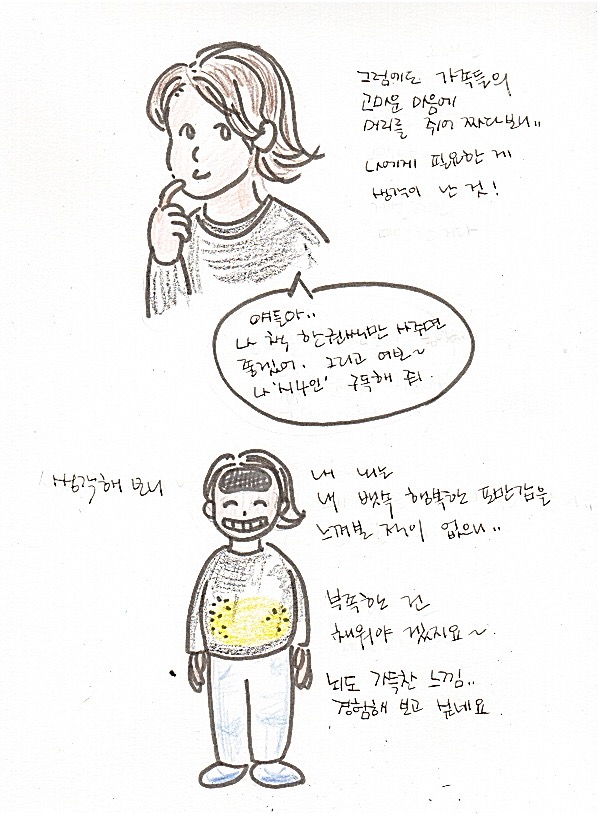 그럼에도 가족들의
고마운 마음에
머리를 쥐어 짜다보니..
나에게 필요한 게
생각이 난 것!
얘들아..
나 책 한권씩만 사주면
좋겠어. 그리고 여보~
나 '시사인' 구독해 줘.
생각해 보니
내 뇌는
내 뱃속 행복한 포만감을
느껴본 적이 없으니..
부족한 건
채워야 겠지요~
뇌도 가득찬 느낌..
경험해 보고 싶네요